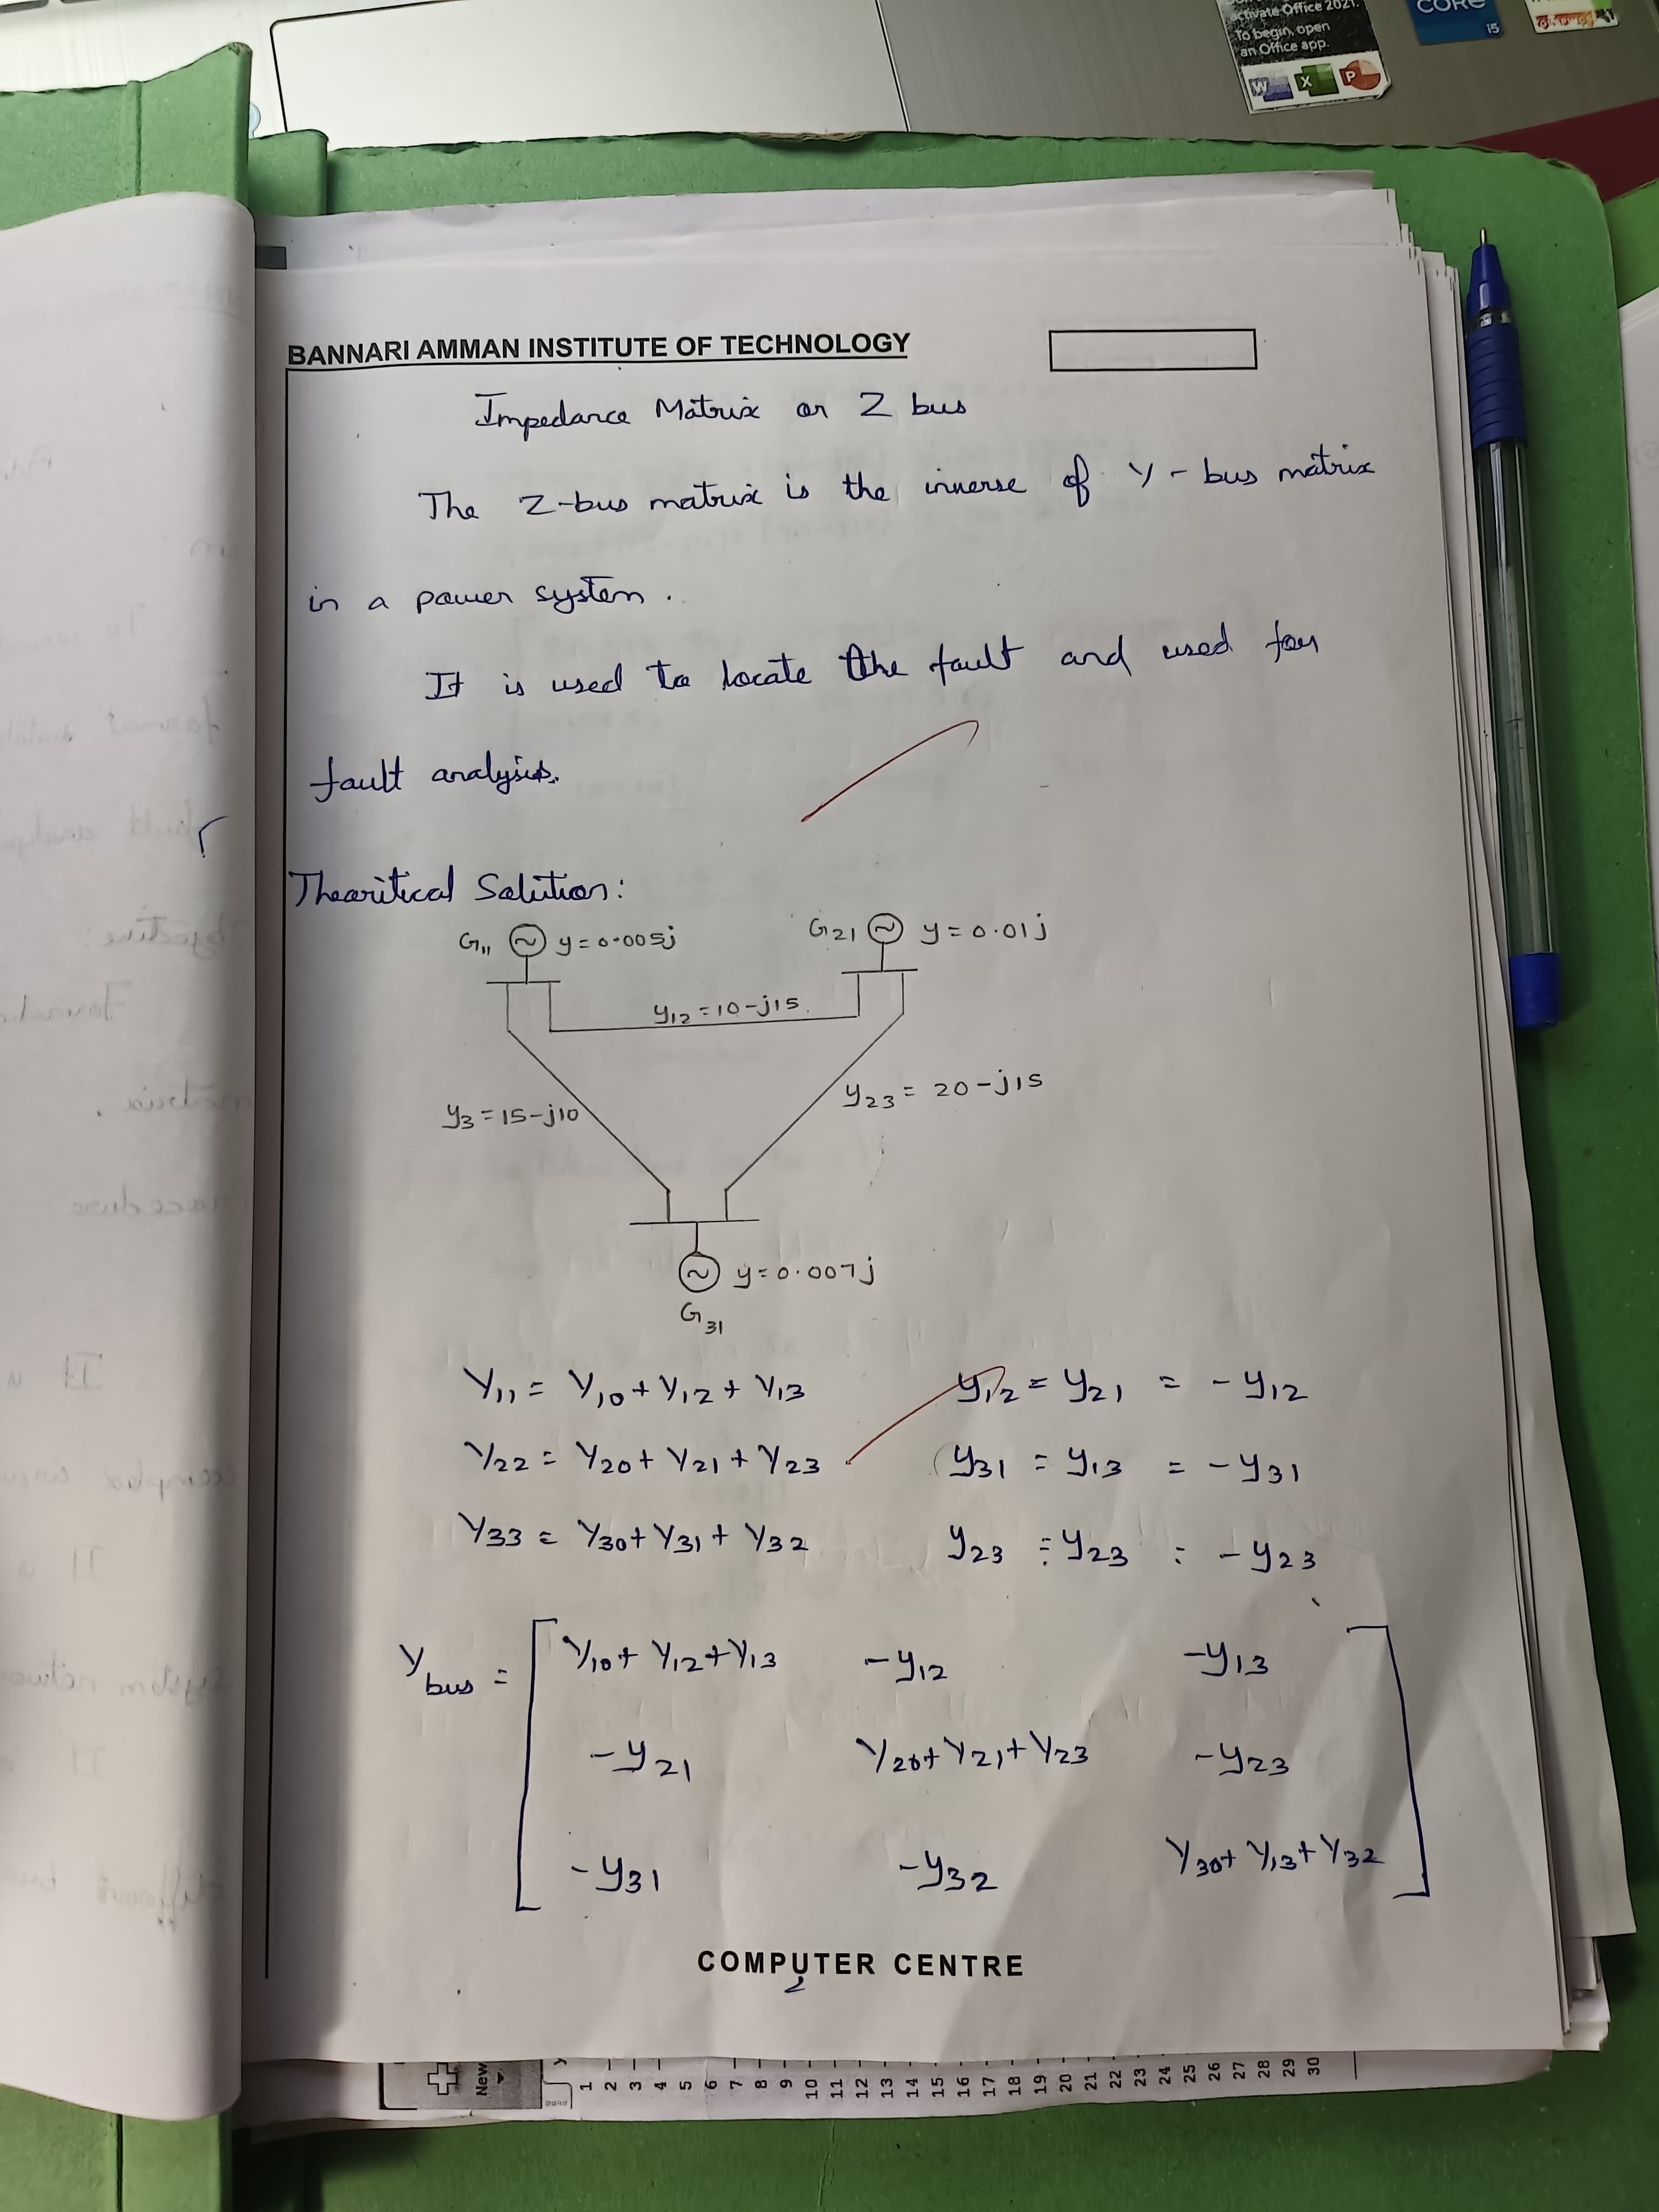 activate Office 2021.
To begin, open
an Office app.
W X P
CORE
i5
BANNARI AMMAN INSTITUTE OF TECHNOLOGY
Impedance Matrix or Z bus
The Z-bus matrix is the inverse of Y-bus matrix
in a power system.
It is used to locate the fault and used for
fault analysis.
Thearitical Solution:
G11 y=0.005j
G21 y=0.01j
y12=10-j15.
y3=15-j10
y23=20-j15
y=0.007j
G31
Y11 = Y10+Y12+Y13 y12 = y21 = -y12
Y22 = Y20+Y21+Y23 y31 = y13 = -y31
Y33 = Y30+Y31+Y32 y23 = y23 = -y23
Y10+Y12+Y13 -y12 -y13
Ybus =
-y21 Y20+Y21+Y23 -y23
-y31 -y32 Y30+Y13+Y32
COMPUTER CENTRE
2
New
1 2 3 4 5 6 7 8 9 10 11 12 13 14 15 16 17 18 19 20 21 22 23 24 25 26 27 28 29 30